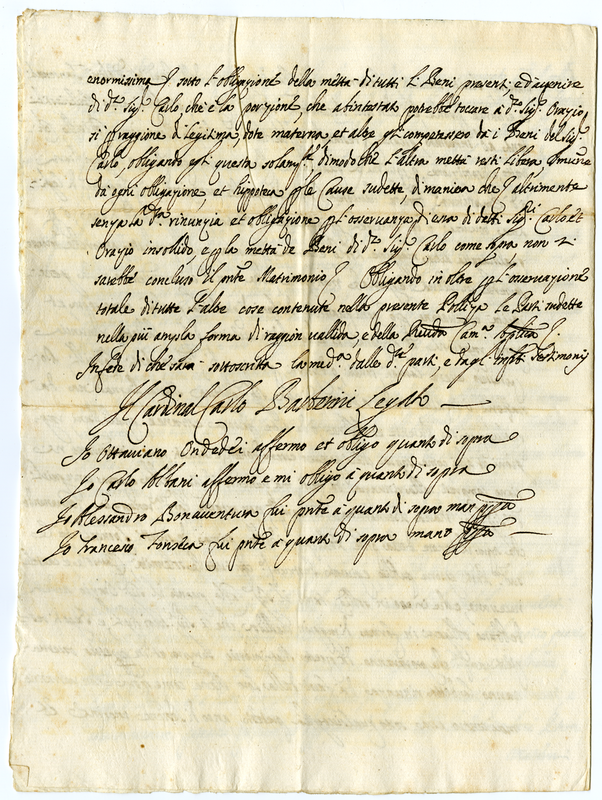 enormissima sotto l'obligazione della metta di tutti li Beni presenti, e d'avenire
di dº Sigr. Carlo, che è la porzione, che ab intestato potrebbe toccare à dº Sigr. Orazio
si ragione di Legitima, dote materna, et altre che competessero dà i Beni del Sigr.
Carlo, obligando questa solamte. dimodoche l'altra metta resti libera, et immune
da ogni obligazione, et hippoteca le Cause sudette, di maniera che altrimente
senza la dta. rinunzia et obligazione l'osservanza di una di detti Sigri. Carlo, et
Orazio insolido, e la metta de Beni di dº Sigr. Carlo come sopra non si
sarebbe concluso il pnte Matrimonio Obligando in oltre l'osservazione
totale di tutte l'altre cose contenute nella presente Polliza le Parti sudette
nella più ampla forma di raggion vallida, e della Camra.
In fede di che sara sottoscritta la medma. dalle dte. parti, e dagl' infri. Testimonij
Il Cardinal Carlo Barberini Legato
Io Ottaviano Ondedei affermo et obligo quanto di sopra
Io Carlo Albani affermo e mi obligo à quanto di sopra
Io Alessandro Bonaventura fui pnte à quanto di sopra man ppa
Io Francesco Fonseca fui pnte à quanto di sopra mano ppa